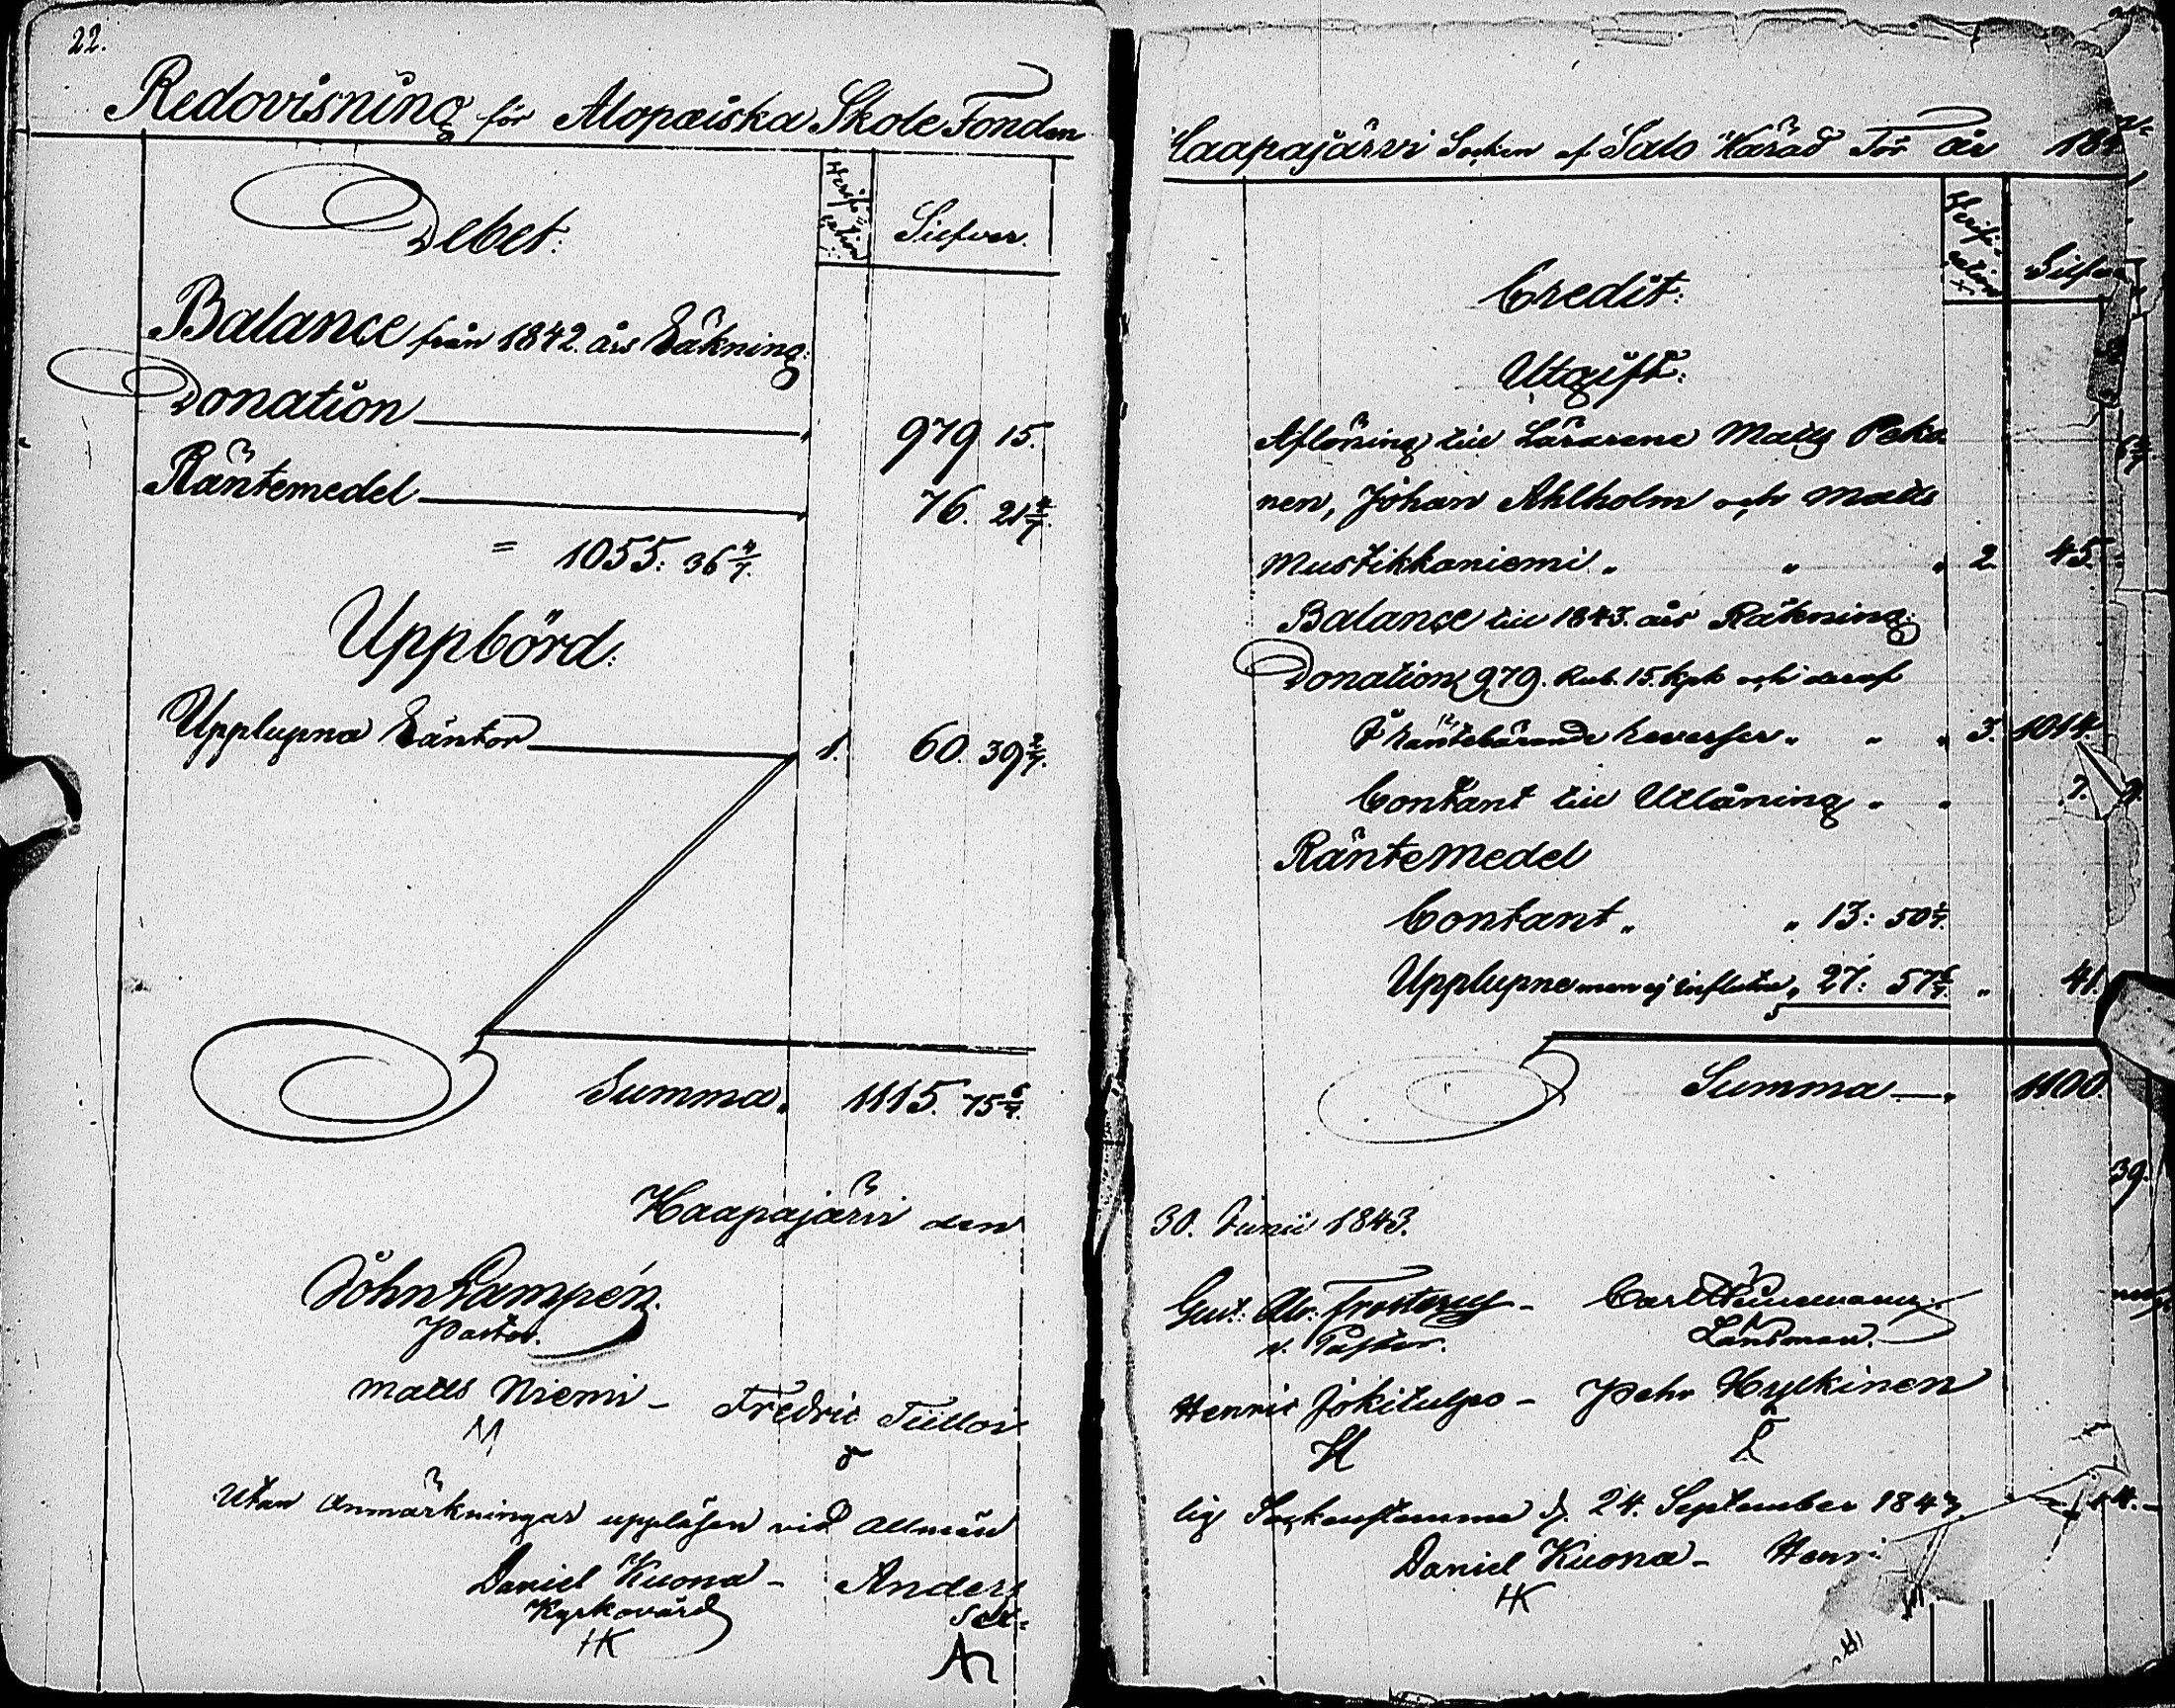 22.
Redovisning för Alopæiska Skole Fonden
Debet:
Verifi-
cation
Silfver.
Balance från 1842. års Räkning:
Donation 979 15.
Räntemedel 76. 21 4/7.
= 1055: 36 4/7.
Uppbörd:
Upplupna Räntor 1. 60. 39 2/7.
Summa. 1115. 75 6/7.
Haapajärvi den
John Lampén.
Pastor.
Matts Niemi - Fredric
M
Utan Anmärkningar uppläsen vid Allmän
Daniel Kuona - Anders
Kyrkovärd Sex=
HK
Haapajärvi Socken af Salo Härad För år 184
Verifi-
cation
Silfver
Credit:
Utgift:
Aflöning till Lärarene Matts Peko
nen, Johan Ahlholm och Matts
Mustikkaniemi " " " 2. 45.
Balance till 1843. års Räkning:
Donation, 979. Rub. 15. Kpk och deraf
I Räntebärande Reverser " " " 3. 1014.
Contant till Utlåning " " 7. 9.
Räntemedel
Contant " " 13: 50 1/7.
Upplupne men ej influtne " 27: 57 6/7. " 41.
Summa — " 1100.
39.
30. Junii 1843.
Gust. Alr. Frosterus - Carl
v. Pastor. Länsman.
Henric Jokitulpo - Pehr Hylkinen
H
lig Sockenstämma d. 24. September 1843
Daniel Kuona - Henri
HK